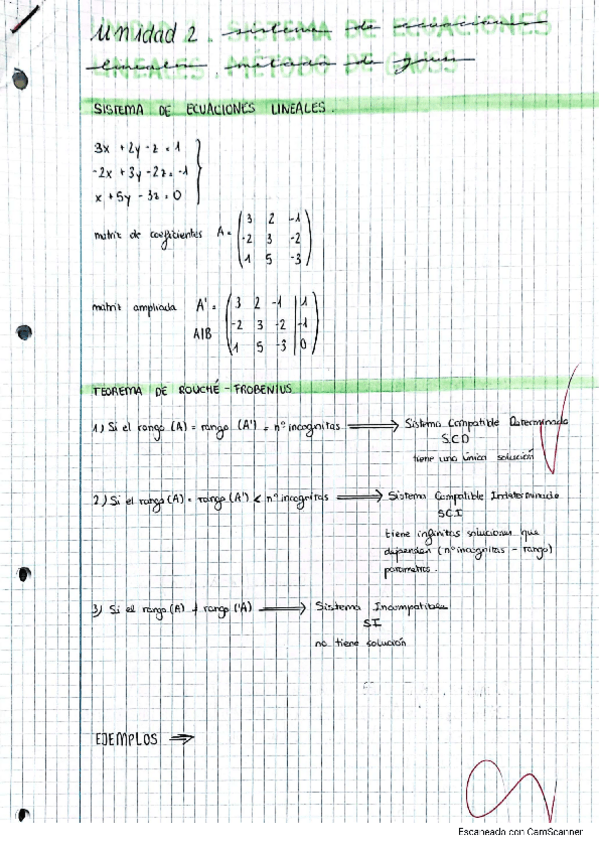 Unidad 2. sistema de ecuaciones
lineales. método de gauss
SISTEMA DE ECUACIONES LINEALES.
3x + 2y - z = 1
-2x + 3y - 2z = -1
x + 5y - 3z = 0
matriz de coeficientes A = ( 3 2 -1
-2 3 -2
1 5 -3 )
matriz ampliada A' = ( 3 2 -1 | 1
A|B -2 3 -2 | -1
1 5 -3 | 0 )
TEOREMA DE ROUCHÉ-FROBENIUS
1) Si el rango (A) = rango (A') = nº incognitas ⟹ Sistema Compatible Determinado
SCD
tiene una única solución
2) Si el rango (A) = rango (A') < nº incognitas ⟹ Sistema Compatible Indeterminado
SCI
tiene infinitas soluciones que
dependen (nº incognitas - rango)
parametros.
3) Si el rango (A) ≠ rango ('A) ⟹ Sistema Incompatible
SI
no tiene solución
EJEMPLOS ⟹
Escaneado con CamScanner